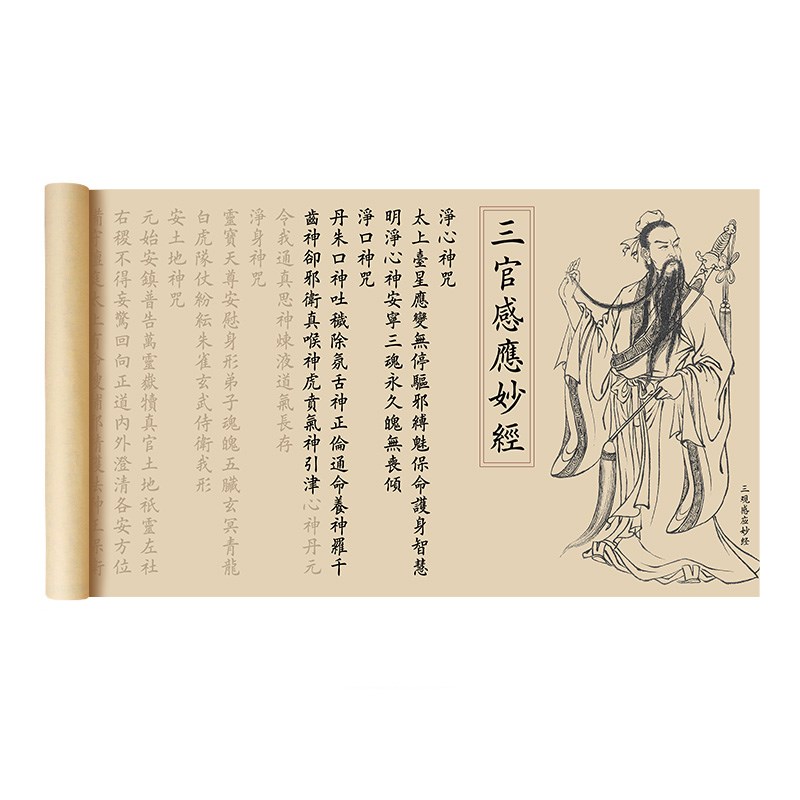 三官感應妙經
淨心神咒
太上臺星應變無停驅邪縛魅保命護身智慧
明淨心神安寧三魂永久魄無喪傾
淨口神咒
丹朱口神吐穢除氛舌神正倫通命養神羅千
齒神卻邪衛真喉神虎賁氣神引津心神丹元
令我通真思神煉液道氣長存
淨身神咒
靈寶天尊安慰身形弟子魂魄五臟玄冥青龍
白虎隊仗紛紜朱雀玄武侍衛我形
安土地神咒
元始安鎮普告萬靈嶽犢真官土地衹靈左社
右稷不得妄驚回向正道內外澄清各安方位
三观感应妙经